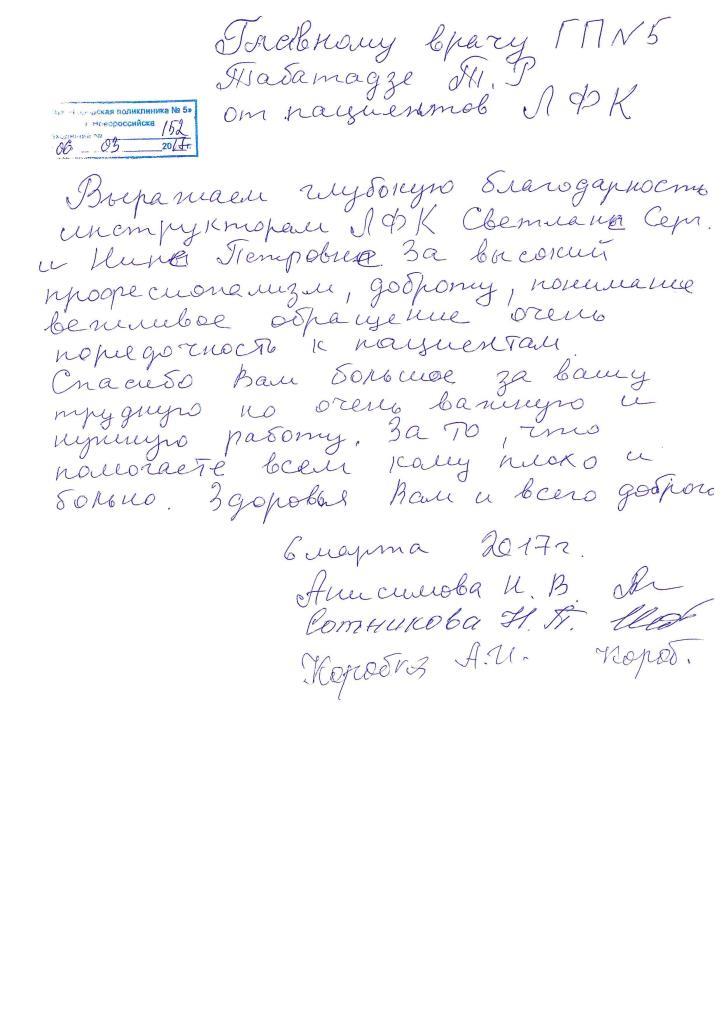 Главному врачу ГП N 5
Табатадзе Т. Р
от пациентов ЛФК
ская поликлиника № 5»
г. Новороссийска
152
06 03 2017г.
Выражаем глубокую благодарность
инструкторам ЛФК Светлане Серг.
и Нине Петровне За высокий
професионализм, доброту, понимание
вежливое обращение очень
порядочность к пациентам
Спасибо Вам большое за вашу
трудную но очень важную и
нужную работу. За то, что
помогаете всем кому плохо и
больно. Здоровья Вам и всего доброго
6 марта 2017г.
Анисимова Н. В.
Сотникова Н. П.
Коробка А.И. Короб.